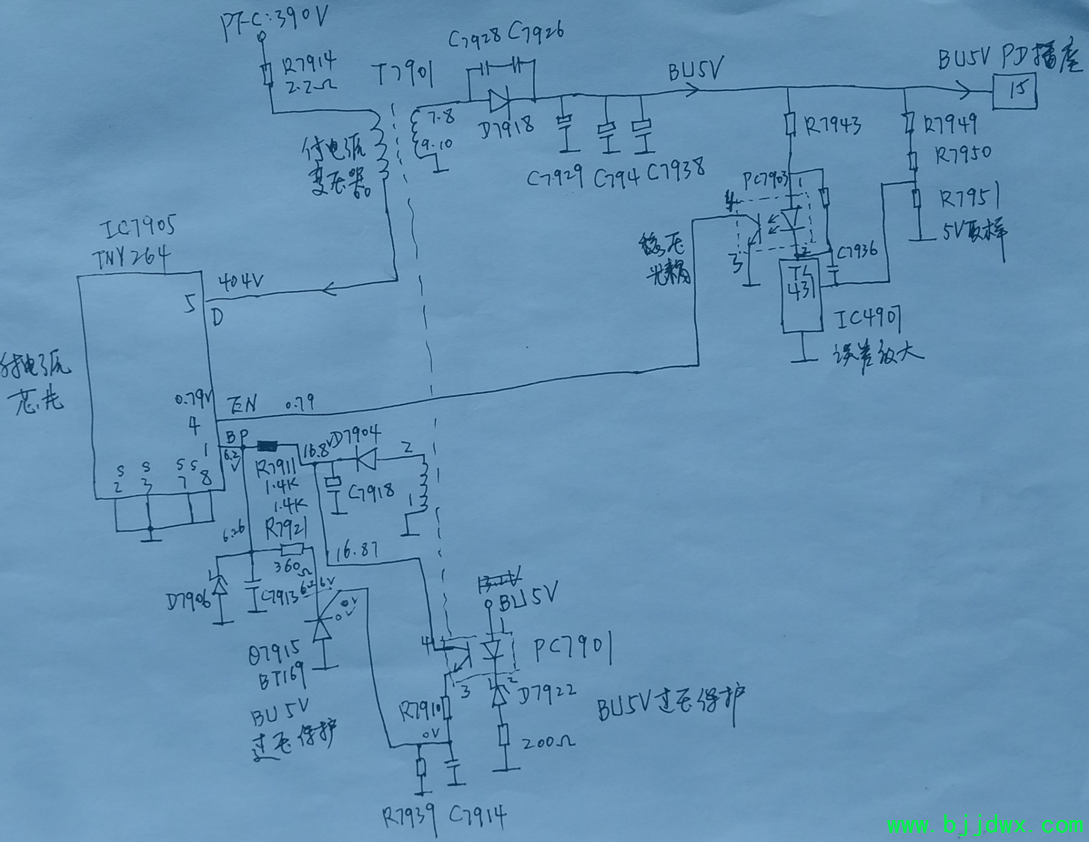 PFC:390V
R7914
2.2Ω
T7901
C7928 C7926
7.8
9.10
D7918
C7929 C794 C7938
BU5V
BU5V PD插座
15
R7943
R7949
R7950
R7951
5V取样
付电源
变压器
PC7903
1
4
3
2
稳压
光耦
C7936
TL
431
IC4907
误差放大
IC7905
TNY264
404V
5
D
付电源
芯片
0.79V
4
EN 0.79
BP
1
6.2
V
S S S S
2 3 7 8
R7911
1.4K
1.4K
16.8V
D7904
2
1
C7918
R7921
360Ω
6.26
6.26V
16.87
D7906
C7913
0V
0V
Q7915
BT169
BU5V
过压保护
BU5V
1
4
3
2
PC7901
D7922
200Ω
BU5V过压保护
R7910
0V
R7939 C7914
www.bjjdwx.com